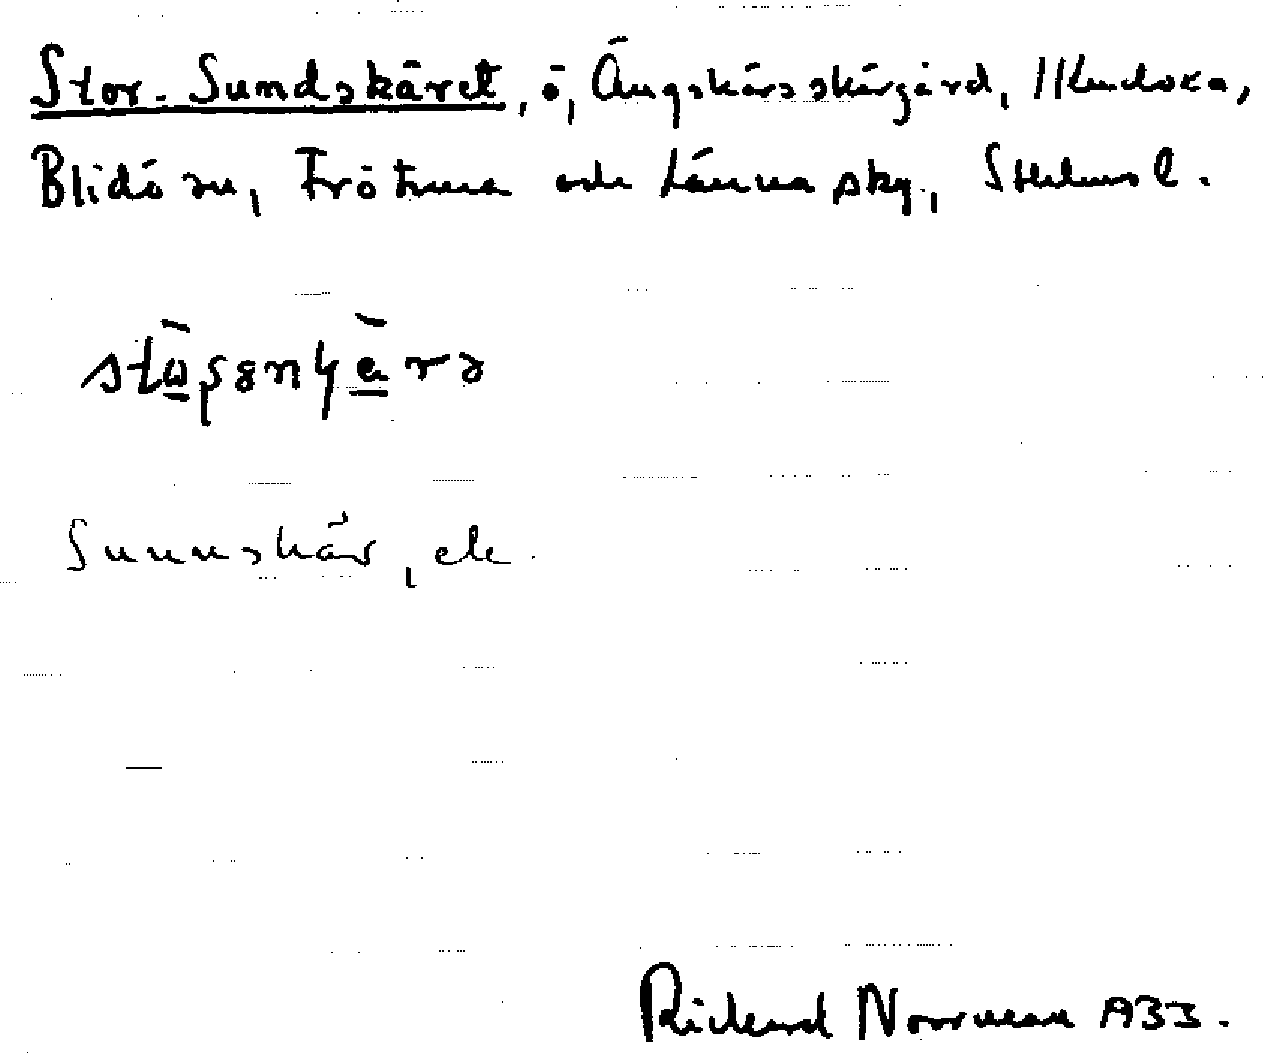 Stor-Sundskäret, ö, Ängskärsskärgård,
Blidö sn, Frötuna och Länna sky, Sthlms l.
Sunnskär, ek.
Rickard Norrman 1933.